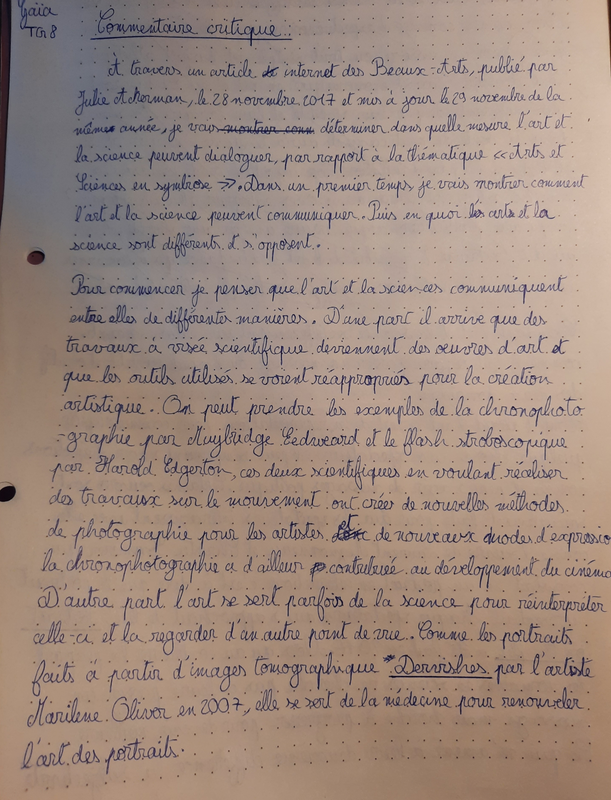 Gaïa
TG8
Commentaire critique :
À travers un article internet des Beaux-Arts, publié par
Julie Ackerman, le 28 novembre 2017 et mis à jour le 29 novembre de la
même année, je vais montrer comm déterminer dans quelle mesure l'art et
la science peuvent dialoguer, par rapport à la thématique « Arts et
Sciences en symbiose ». Dans un premier temps je vais montrer comment
l'art et la science peuvent communiquer. Puis en quoi les arts et la
science sont différents et s'opposent.
Pour commencer je penser que l'art et la sciences communiquent
entre elles de différentes manières. D'une part il arrive que des
travaux à visée scientifique deviennent des oeuvres d'art et
que les outils utilisés se voient réappropriés pour la création
artistique. On peut prendre les exemples de la chronophoto
-graphie par Muybridge Eedweard et le flash stroboscopique
par Harold Edgerton, ces deux scientifiques en voulant réaliser
des travaux sur le mouvement ont créer de nouvelles méthodes
de photographie pour les artistes. Et de nouveaux modes d'expressio
la chronophotographie a d'ailleur contribuée au développement du ciném
D'autre part l'art se sert parfois de la science pour réinterpréter
celle-ci et la regarder d'un autre point de vue. Comme les portraits
faits à partir d'images tomographique "Dervishes par l'artiste
Marilene Oliver en 2007, elle se sert de la médecine pour renouveler
l'art des portraits.